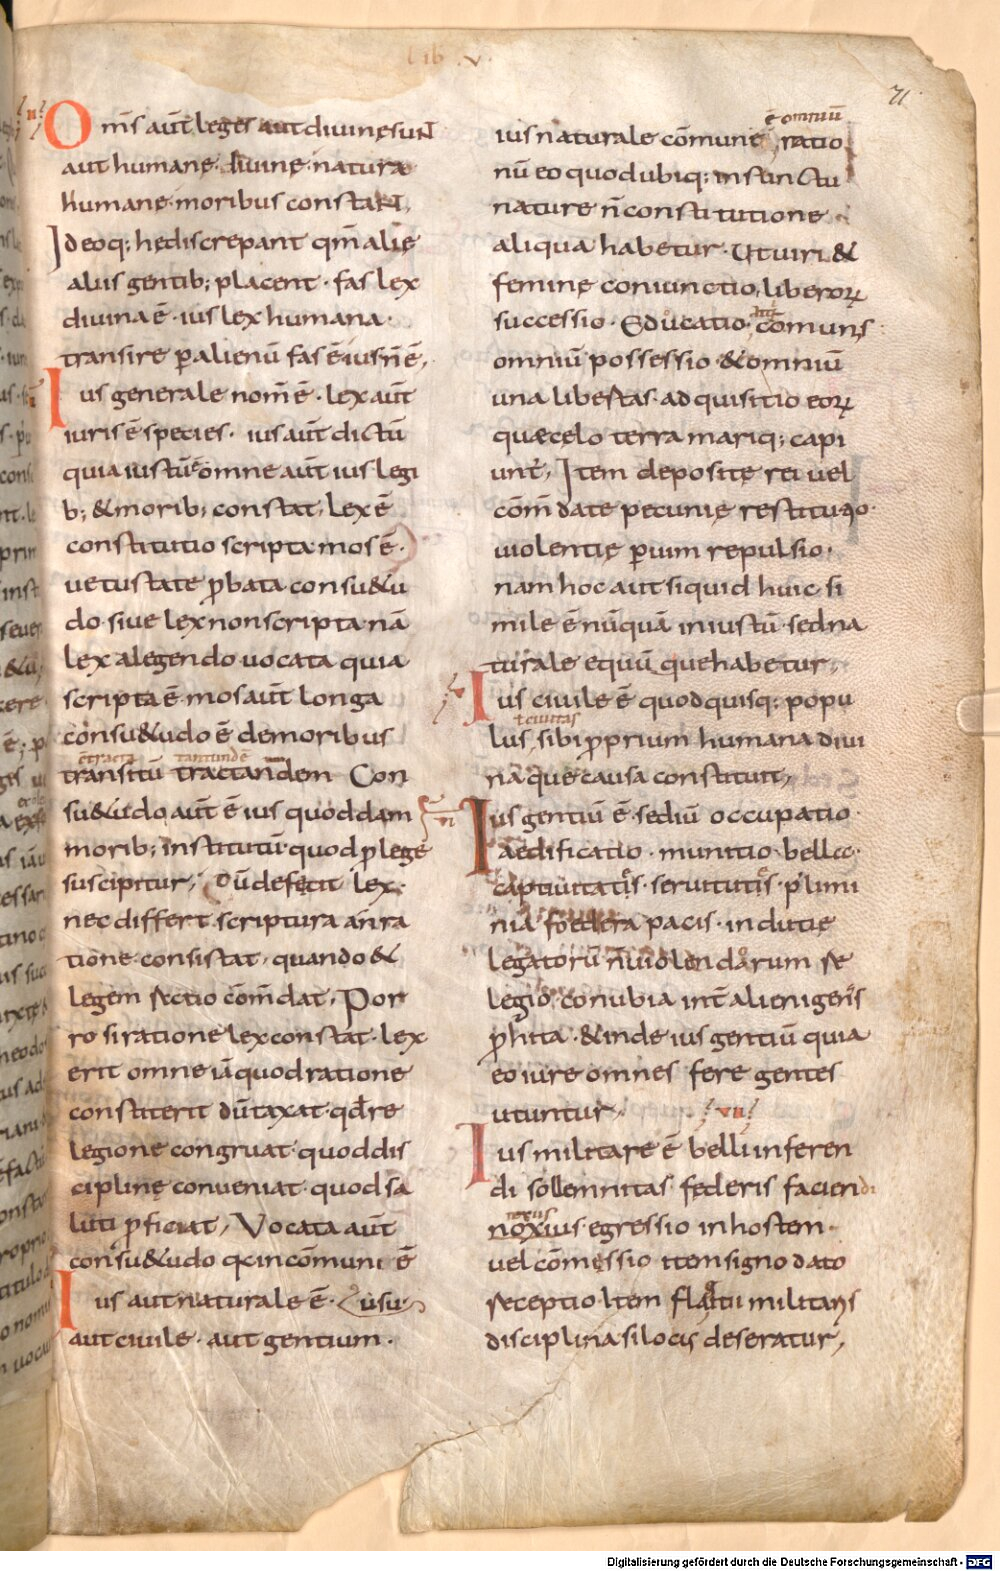 lib · v ·
71
·ii·
Om̄s aūt leges aut diuinę suNT
aut humanę. diuinę naturae
humanę moribus constaNT,
Ideoq; hę discrepant qm̄ alię
aliis gentib; placent · fas lex
diuina ē · ius lex humana ·
transire p alienū fas ē ius n̄ ē,
Ius generale nom̄ ē · lex aūt
iuris ē species · ius aūt dictū
quia iustū ē omne aūt ius legi
b; & morib; constat, Lex ē
constitutio scripta mos ē ·
uetustate pbata consu&u
do · siue lex non scripta nā
lex a legendo uocata quia
scripta ē · mos aūt longa
consu&udo ē de moribus
ē tracta tantundē
transitū tractandem Con
su&udo aūt ē ius quoddam
morib; institutū quod p lege
suscipitur, Cū deficit lex ·
nec differt scriptura an ra
tione consistat, quando &
legem rectio com̄dat, Por
ro si ratione lex constat · lex
erit omne iā quod ratione
constiterit dūtaxat qd̄ re
legione congruat quod dis
cipline conueniat quod sa
luti pficiat, Vocata aūt
consu&udo q̄a in cōmuni ē
Ius aut naturale ē · usu
aut ciuile · aut gentium ·
ē omniū
ius naturale cōmune ratio
nū eo quod ubiq; instinctu
naturę n̄ constitutione
aliqua habetur · Ut uiri &
feminę coniunctio, liberorꝝ
successio · Educatio · cōmunis
omniū possessio · & omniū
una libertas · adquisitio eorꝝ
quae celo terra mariq; capi
unt̄, Item depositę rei uel
com̄datę pecunię restitutio ·
uiolentię p uim repulsio ·
nam hoc aut siquid huic si
mile ē nūquā iniustū · sed na
turale equū que habetur,
Ius ciuile ē quod quisq; popu
t ciuitas
lus, sibi pprium humana diui
naque causa constituit,
·vi·
Ius gentiū ē · sediū occupatio ·
aedificatio · munitio · bellae ·
captiuitatis · seruitutis · p limi
nia foedera pacis · indutię
legatorū n̄ uiolandarum re
legio · conubia int alienigenis
phita · & inde ius gentiū quia
eo iure omnes fere gentes
utuntur,
·vii·
Ius militare ē belli inferen
di sollemnitas federis faciendi
nexus
noxius · egressio in hostem ·
uel cōmessio · item signo dato
receptio · Item flagitii militaris
disciplina si locis deseratur,
Digitalisierung gefördert durch die Deutsche Forschungsgemeinschaft - DFG